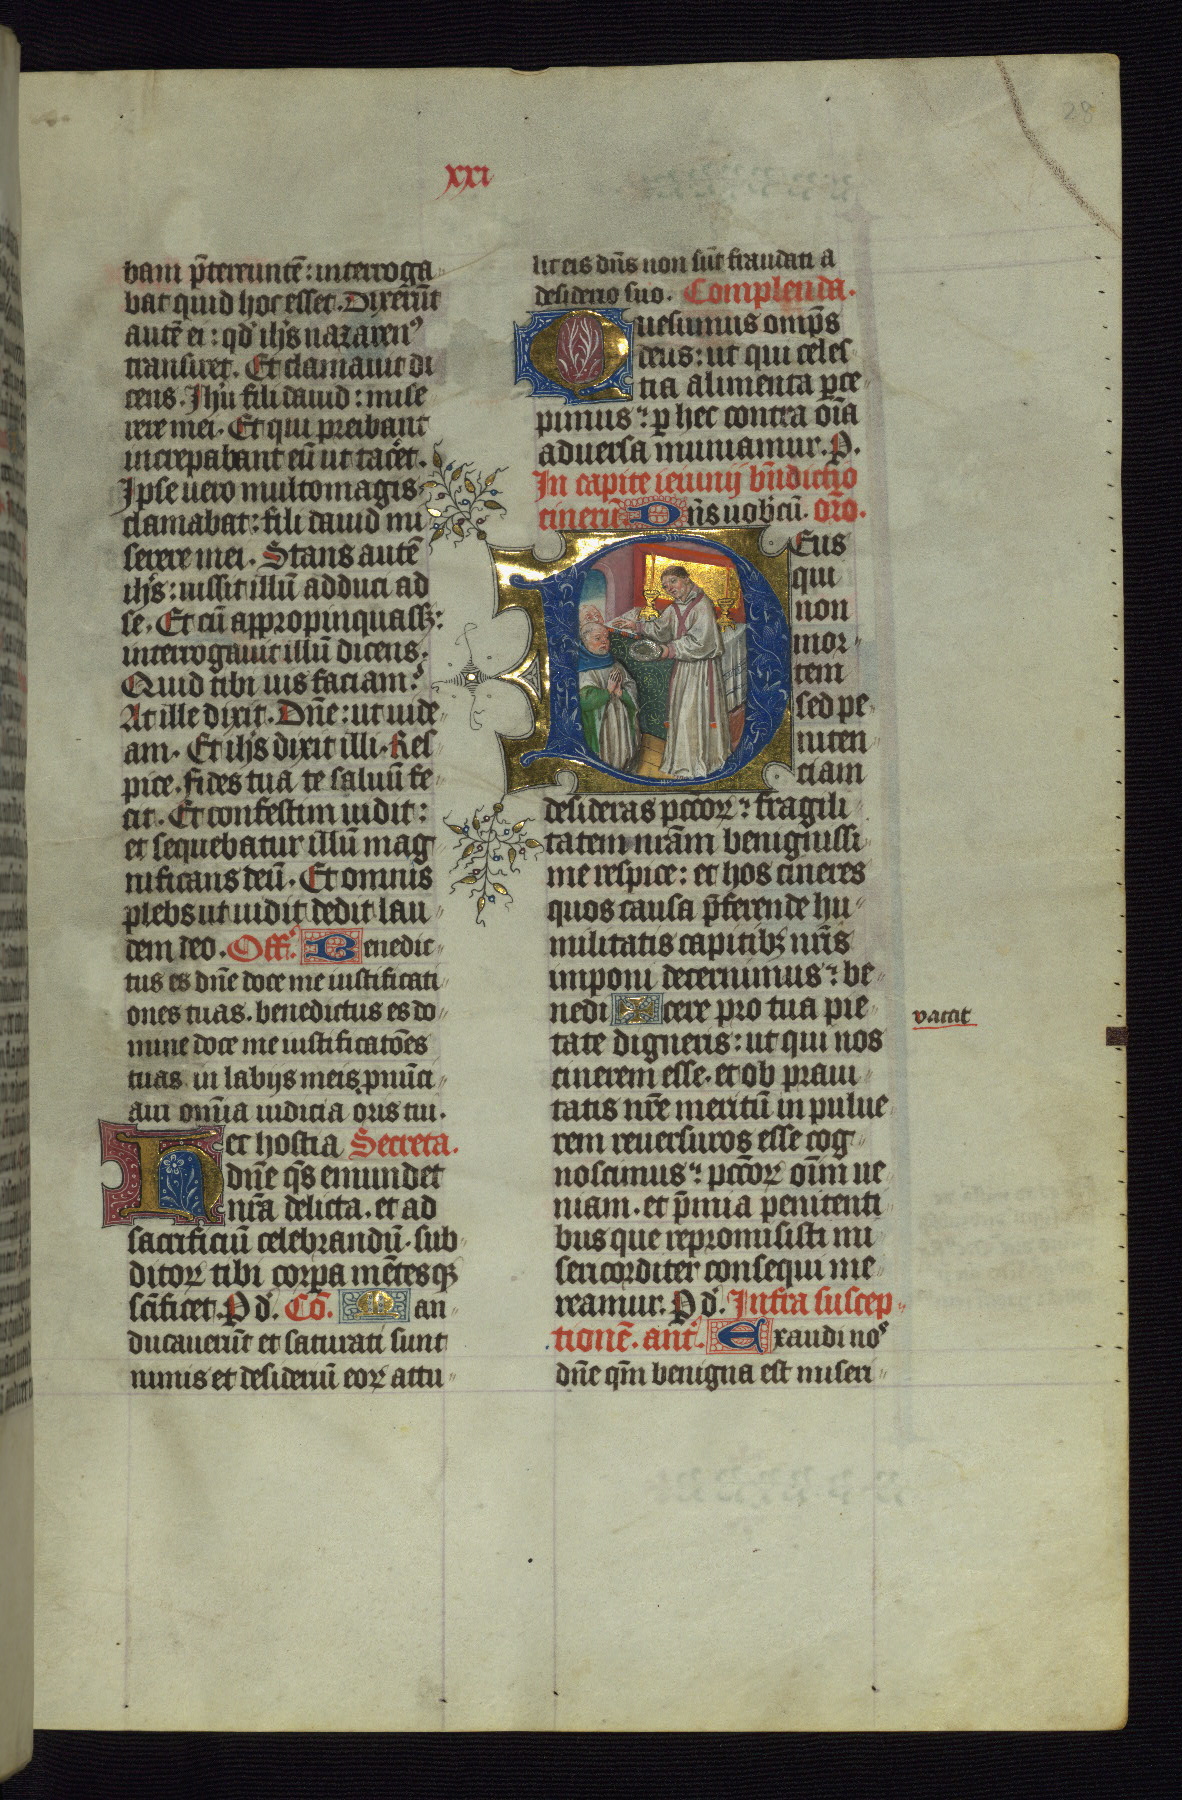 28
xxi
bam p̄tereuntē: interroga
bat quid hoc esset. Dixerūt
autē ei: qd ihs nazaren⁹
transiret. Et clamauit di
cens. Ihū fili dauid: mise
rere mei. Et qui preibant
increpabant eū ut tacēt.
Ipse uero multomagis
clamabat: fili dauid mi
serere mei. Stans autē
ihs: iussit illū adduci ad
se. Et cū appropinquassꝫ:
interrogauit illū dicens.
Quid tibi uis faciam?
At ille dixit. Dn̄e: ut uide
am. Et ihs dixit illi. Res
pice. fides tua te saluū fe
cit. Et confestim uidit:
et sequebatur illū mag
nificans deū. Et omnis
plebs ut uidit dedit lau
dem deo. Off. Benedic
tus es dn̄e doce me iustificati
ones tuas. benedictus es do
mine doce me iustificatōes
tuas in labijs meis pnūci
aui omīa iudicia oris tui.
Hec hostia Secreta.
dn̄e q̄s emundet
nr̄a delicta. et ad
sacrificiū celebrandū. sub
ditoꝝ tibi corpa mētesqꝫ
sc̄ificet. P d. Cō. Man
ducauerūt et saturati sunt
nimis et desideriū eoꝝ attu
lit eis dn̄s non sūt fraudati a
desiderio suo. Complenda.
Quesumus omp̄s
deus: ut qui celes
tia alimenta ꝑce
pimus: ꝑ hec contra oīa
aduersa muniamur. P.
In capite ieiunij bn̄dictio
cinerū. Dn̄s uobcū. or̄o.
Deus
qui
non
mor
tem
sed pe
niten
ciam
desideras pccōꝝ: fragili
tatem nr̄am benignissi
me respice: et hos cineres
quos causa p̄ferende hu
militatis capitibꝫ nr̄is
imponi decernimus: be
nedi✠cere pro tua pie
tate digneris: ut qui nos
cinerem esse. et ob praui
tatis nr̄e meritū in pulue
rem reuersuros esse cog
noscimus: pccōꝝ oīm ue
niam. et p̄mia penitenti
bus que repromisisti mi
sericorditer consequi me
reamur. P d. Infra suscep
tionē. ant. Exaudi nos
dn̄e qm̄ benigna est miseri
vaccit